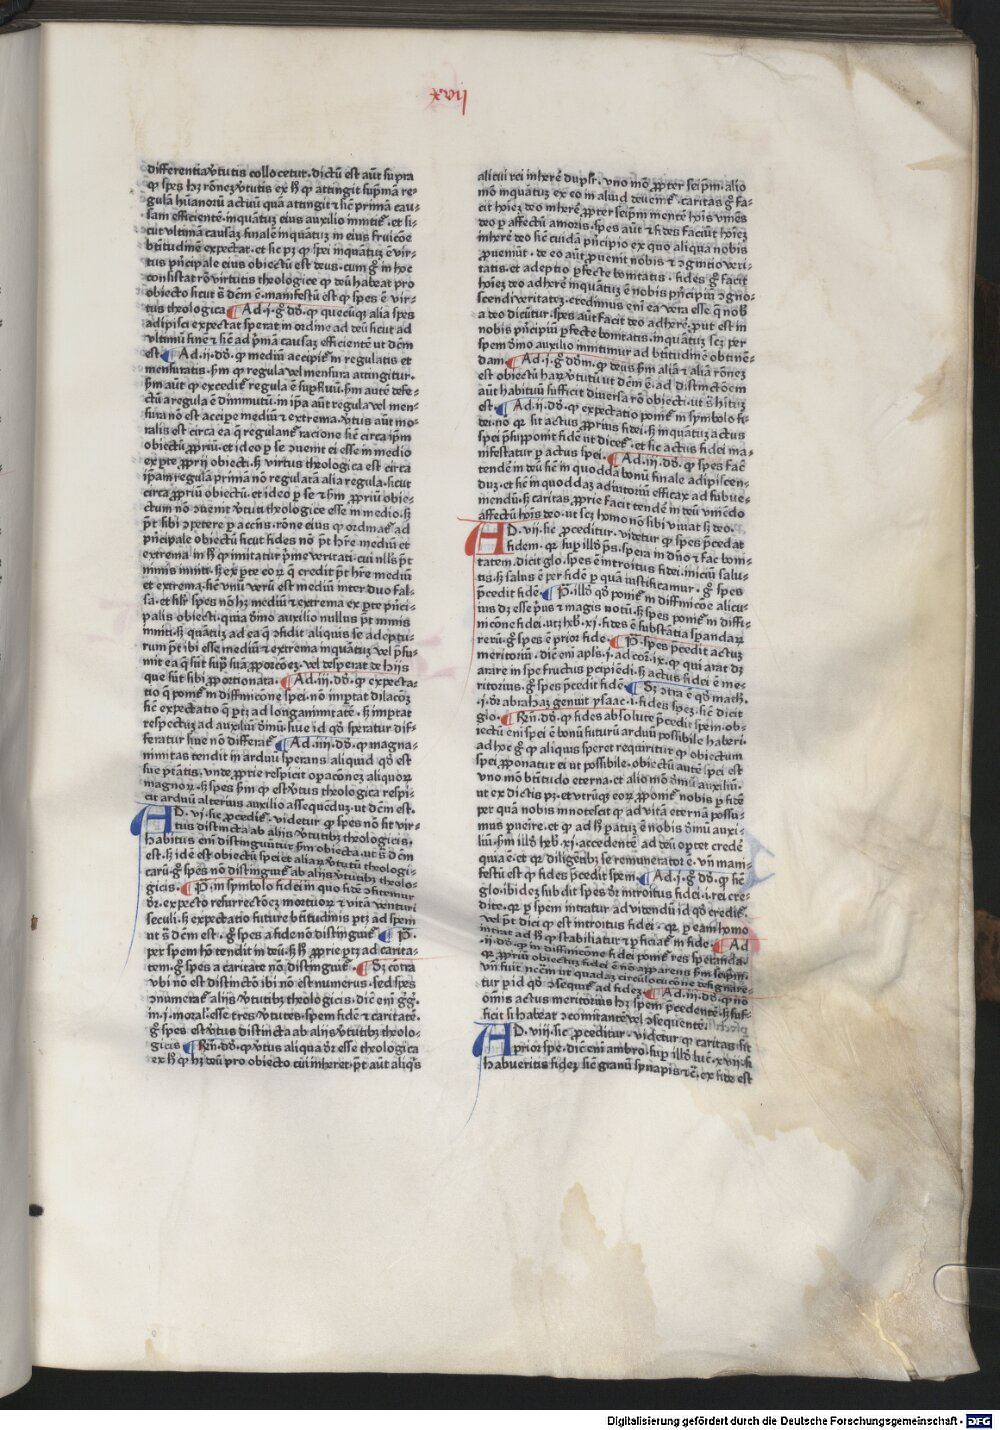 xvii
differentia v̾tutis collocetur · dictū est aūt supra
ꝙ spes hꝫ rōneꝫ v̾tutis ex h̄ ꝙ attingit sup̄mā re-
gulā hūanoꝝ actuū quā attingit ⁊ sic̄ primā cau-
sam efficientē · inquātuꝫ eius auxilio innitit̉ · et si-
cut vltimā causaꝫ finalē inquātuꝫ in eius fruicōe
btītudinē expectat · et sic pꝫ ꝙ spei inquātuꝫ ē vir-
tus pn̄cipale eius obiectū est deus · cum gͦ in hoc
consistat rō virtutis theologice ꝙ deū habeat pro
obiecto sicut s̄ dēm ē · manifestū est ꝙ spes ē vir-
tus theologica Ad · j · gͦ dō · ꝙ quecūqꝫ alia spes
adipisci expectat sperat in ordine ad deū sicut ad
vltimū finē ⁊ sic̄ ad p̄mā causaꝫ efficientē ut dēm
est Ad · ii · dō · ꝙ mediū accipit̉ in regulatis et
mensuratis · scḋm ꝙ regula vel mensura attingitur ·
scḋm aūt ꝙ excedit̉ regula ē supfluū · scḋm autē defe-
ctū a regula ē dīminutū · in ipa aūt regula vel men-
sura nō est accipe mediū ⁊ extrema · v̾tus aūt mo-
ralis est circa ea q̄ regulant̉ racione sic̄ circa ipm
obiectū ꝓpriū · et ideo ꝑ se ꝯuenit ei esse in medio
ex ꝑte ꝓprij obiecti · sꝫ virtus theologica est circa
ipam regulā primā nō regulatā alia regula · sicut
circa ꝓpriū obiectū · et ideo ꝑ se ⁊ scḋm ꝓpriū obie-
ctum nō ꝯuenit v̾tuti theologice esse in medio · sꝫ
p̄t sibi ꝯpetere ꝑ accn̄s · rōne eius ꝙ ordinat̉ ad
pn̄cipale obiectū sicut fides nō p̄t hr̄e mediū et
extrema in h̄ ꝙ innitatur p̄me veritati · cui nllꝰ p̄t
nimis inniti · sꝫ ex ꝑte eoꝝ q̄ credit p̄t hr̄e mediū
et extrema · sic̄ vnū verū est mediū inter duo fal-
sa · et silr spes nō hꝫ mediū ⁊ extrema ex ꝑte pn̄ci-
palis obiecti · quia dīno auxilio nullus p̄t nimis
inniti · sꝫ quātuꝫ ad ea q̄ ꝯfidit aliquis se adeptu-
rum p̄t ibi esse mediū ⁊ extrema inquātuꝫ vel p̄su-
mit ea q̄ sūt sup suā ꝓporcōeꝫ · vel desperat de hijs
que sūt sibi ꝓportionata · Ad · iii · dō · ꝙ expecta-
tio q̄ ponit̉ in diffinicōne spei · nō importat dilacōꝫ
sic̄ expectatio q̄ ptꝫ ad longanimitatē · sꝫ importat
respectuꝫ ad auxiliū dīnū · siue id qd̄ speratur dif-
feratur siue nō differat̉ Ad · iiii · dō · ꝙ magna-
nimitas tendit in arduū sperans aliquid qd̄ est
sue ptātis · vnde ꝓprie respicit opacōneꝫ aliquoꝝ
magnoꝝ · sꝫ spes scḋm ꝙ est v̾tus theologica respi-
cit arduū alterius auxilio assequēduꝫ · ut dēm est ·
AD · vj · sic̄ ꝓcedit̉ · videtur ꝙ spes nō sit vir-
tus distincta ab alijs v̾tutibꝫ theologicis ·
habitus em̄ distinguūtur scḋm obiecta · ut s̄ dēm
est · sꝫ idē est obiectū spei et aliaꝝ v̾tutū theologi-
carū · gͦ spes nō distinguit̉ ab alijs v̾tutibꝫ theolo-
gicis · P̄ · in symbolo fidei in quo fidē ꝯfitemur
dr̄ · expecto resurrectōeꝫ mortuoꝝ ⁊ vitā venturi
seculi · sꝫ expectatio future btītudinis ptꝫ ad spem
ut s̄ dēm est · gͦ spes a fide nō distinguit̉ P̄ ·
per spem hō tendit in deū · sꝫ h̄ ꝓprie ptꝫ ad carita-
tem · gͦ spes a caritate nō distinguit̉ · Sꝫ cōtra
vbi nō est distinctō ibi nō est numerus · sed spes
ꝯnumerat̉ alijs v̾tutibꝫ theologicis · dic̄ em̄ g̾g̾ ·
in · j · moral · esse tres v̾tutes · spem fidē ⁊ caritatē ·
gͦ spes est v̾tus distincta ab alijs v̾tutibꝫ theolo-
gicis Rn̄ · dō · ꝙ v̾tus aliqua dr̄ esse theologica
ex h̄ ꝙ hꝫ deū pro obiecto cui inheret · p̄t aūt aliqͥs
alicui rei inherē duplr · vno mō ꝓpter seipm̄ · alio
mō inquātuꝫ ex eo in aliud deuenit̉ · caritas gͦ fa-
cit hoīeꝫ deo inherē ꝓpter seipm̄ mentē hoīs vniēs
deo ꝑ affectū amoris · spes aūt ⁊ fides faciūt hoīeꝫ
inherē deo sic̄ cuidā pn̄cipio ex quo aliqua nobis
ꝓueniūt · de eo aūt ꝓuenit nobis ⁊ ꝯgnitio veri-
tatis · et adeptio ꝑfecte bonitatis · fides gͦ facit
hoīeꝫ deo adherē inquātuꝫ ē nobis pn̄cipiū ꝯgno-
scendi veritateꝫ · credimus em̄ ea vera esse q̄ nob̄
a deo dicūtur · spes aūt facit deo adherē · ꝓut est in
nobis pn̄cipiū ꝑfecte bonitatis · inquātuꝫ scꝫ per
spem dīno auxilio innitimur ad btītudinē obtinē-
dam Ad · j · gͦ dōm · ꝙ deus scḋm aliā ⁊ aliā rōneꝫ
est obiectū haꝝ v̾tutū ut dēm ē · ad distinctōem
aūt habituū sufficit diuersa rō obiecti · ut s̄ hituꝫ
est Ad · ii · dō · ꝙ expectatio ponit̉ in symbolo fi-
dei · nō qꝛ sit actus ꝓprius fidei · sꝫ inquātuꝫ actus
spei p̄supponit fidē ut dicet̉ · et sic actus fidei ma-
nifestatur ꝑ actus spei · Ad · iii · dō · ꝙ spes fac̄
tendē in deū sic̄ in quoddā bonū finale adipiscen-
duꝫ · et sic̄ in quoddaꝫ adiutoriū efficax ad subue-
niendū · sꝫ caritas ꝓprie facit tendē in deū vniēdo
affectū hoīs deo · ut scꝫ homo nō sibi viuat sꝫ deo ·
AD · vij · sic ꝓceditur · videtur ꝙ spes p̄cedat
fidem · qꝛ sup illd̄ ps̄ · spera in dn̄o ⁊ fac boni-
tatem · dicit glo · spes ē introitus fidei · iniciū salu-
tis · sꝫ salus ē per fidē ꝑ quā iustificamur · gͦ spes
p̄cedit fidē P̄ · illd̄ qd̄ ponit̉ in diffinicōe alicu-
ius dꝫ esse p̄us ⁊ magis notū · sꝫ spes ponit̉ in diffi-
nicōne fidei · utꝫ heb̄ · xj · fides ē substātia spandaꝝ
rerū · gͦ spes ē prior fide · P̄ · spes p̄cedit actuꝫ
meritoriū · dic̄ em̄ apls̄ · j · ad cor̄ · ix · ꝙ qui arat dꝫ
arare in spe fructus ꝑcipiēdi · sꝫ actus fidei ē me-
ritorius · gͦ spes p̄cedit fidē Sꝫ ꝯtra ē qd̄ math ·
j · dr̄ abrahaꝫ genuit ysaac · i · fides speꝫ · sic̄ dicit
glo · Rn̄ · dō · ꝙ fides absolute p̄cedit spem · ob-
iectū em̄ spei ē bonū futurū arduū possibile haberi ·
ad hoc gͦ ꝙ aliquis speret requiritur ꝙ obiectum
spei ꝓponatur ei ut possibile · obiectū autē spei est
vno mō btītudo eterna · et alio mō dīnū auxiliū ·
ut ex dictis pꝫ · et vtrūqꝫ eoꝝ ꝓponit̉ nobis ꝑ fidē
per quā nobis innotescit ꝙ ad vitā eternā possu-
mus ꝑuenire · et ꝙ ad h̄ paratuꝫ ē nobis dīnū auxi-
liū · scḋm illd̄ heb̄ · xj · accedentē ad deū oportet credē
quia ē · et qꝛ diligētibꝫ se remunerator ē · vn̄ mani-
festū est ꝙ fides p̄cedit spem Ad · j · gͦ dō · ꝙ sic̄
glo · ibideꝫ subdit spes dr̄ introitus fidei · i · rei cre-
dite · qꝛ ꝑ spem intratur ad videndū id qd̄ credit̉ ·
vel p̄t dici ꝙ est introitus fidei · qꝛ ꝑ eam homo
intrat ad h̄ ꝙ stabiliatur ⁊ ꝑficiat̉ in fide · Ad
ii · dō · ꝙ in diffinicōne fidei ponit̉ res speranda ·
qꝛ ꝓpriū obiectuꝫ fidei ē nō apparens scḋm seipm̄ ·
vn̄ fuit nec̄m ut quadaꝫ circūlocucōne designare-
tur ꝑ id qd̄ ꝯsequit̉ ad fideꝫ · Ad · iii · dō · ꝙ nō
om̄is actus meritorius hꝫ spem p̄cedentē · sꝫ suf-
ficit si habeat ꝯcomitantē vel ꝯsequentē ·
AD · viij · sic̄ ꝓceditur · videtur ꝙ caritas sit
prior spe · dic̄ em̄ ambro · sup illd̄ luc̄ · xvij · si
habueritis fideꝫ sic̄ granū synapis ⁊c̄ · ex fide est
Digitalisierung gefördert durch die Deutsche Forschungsgemeinschaft - DFG